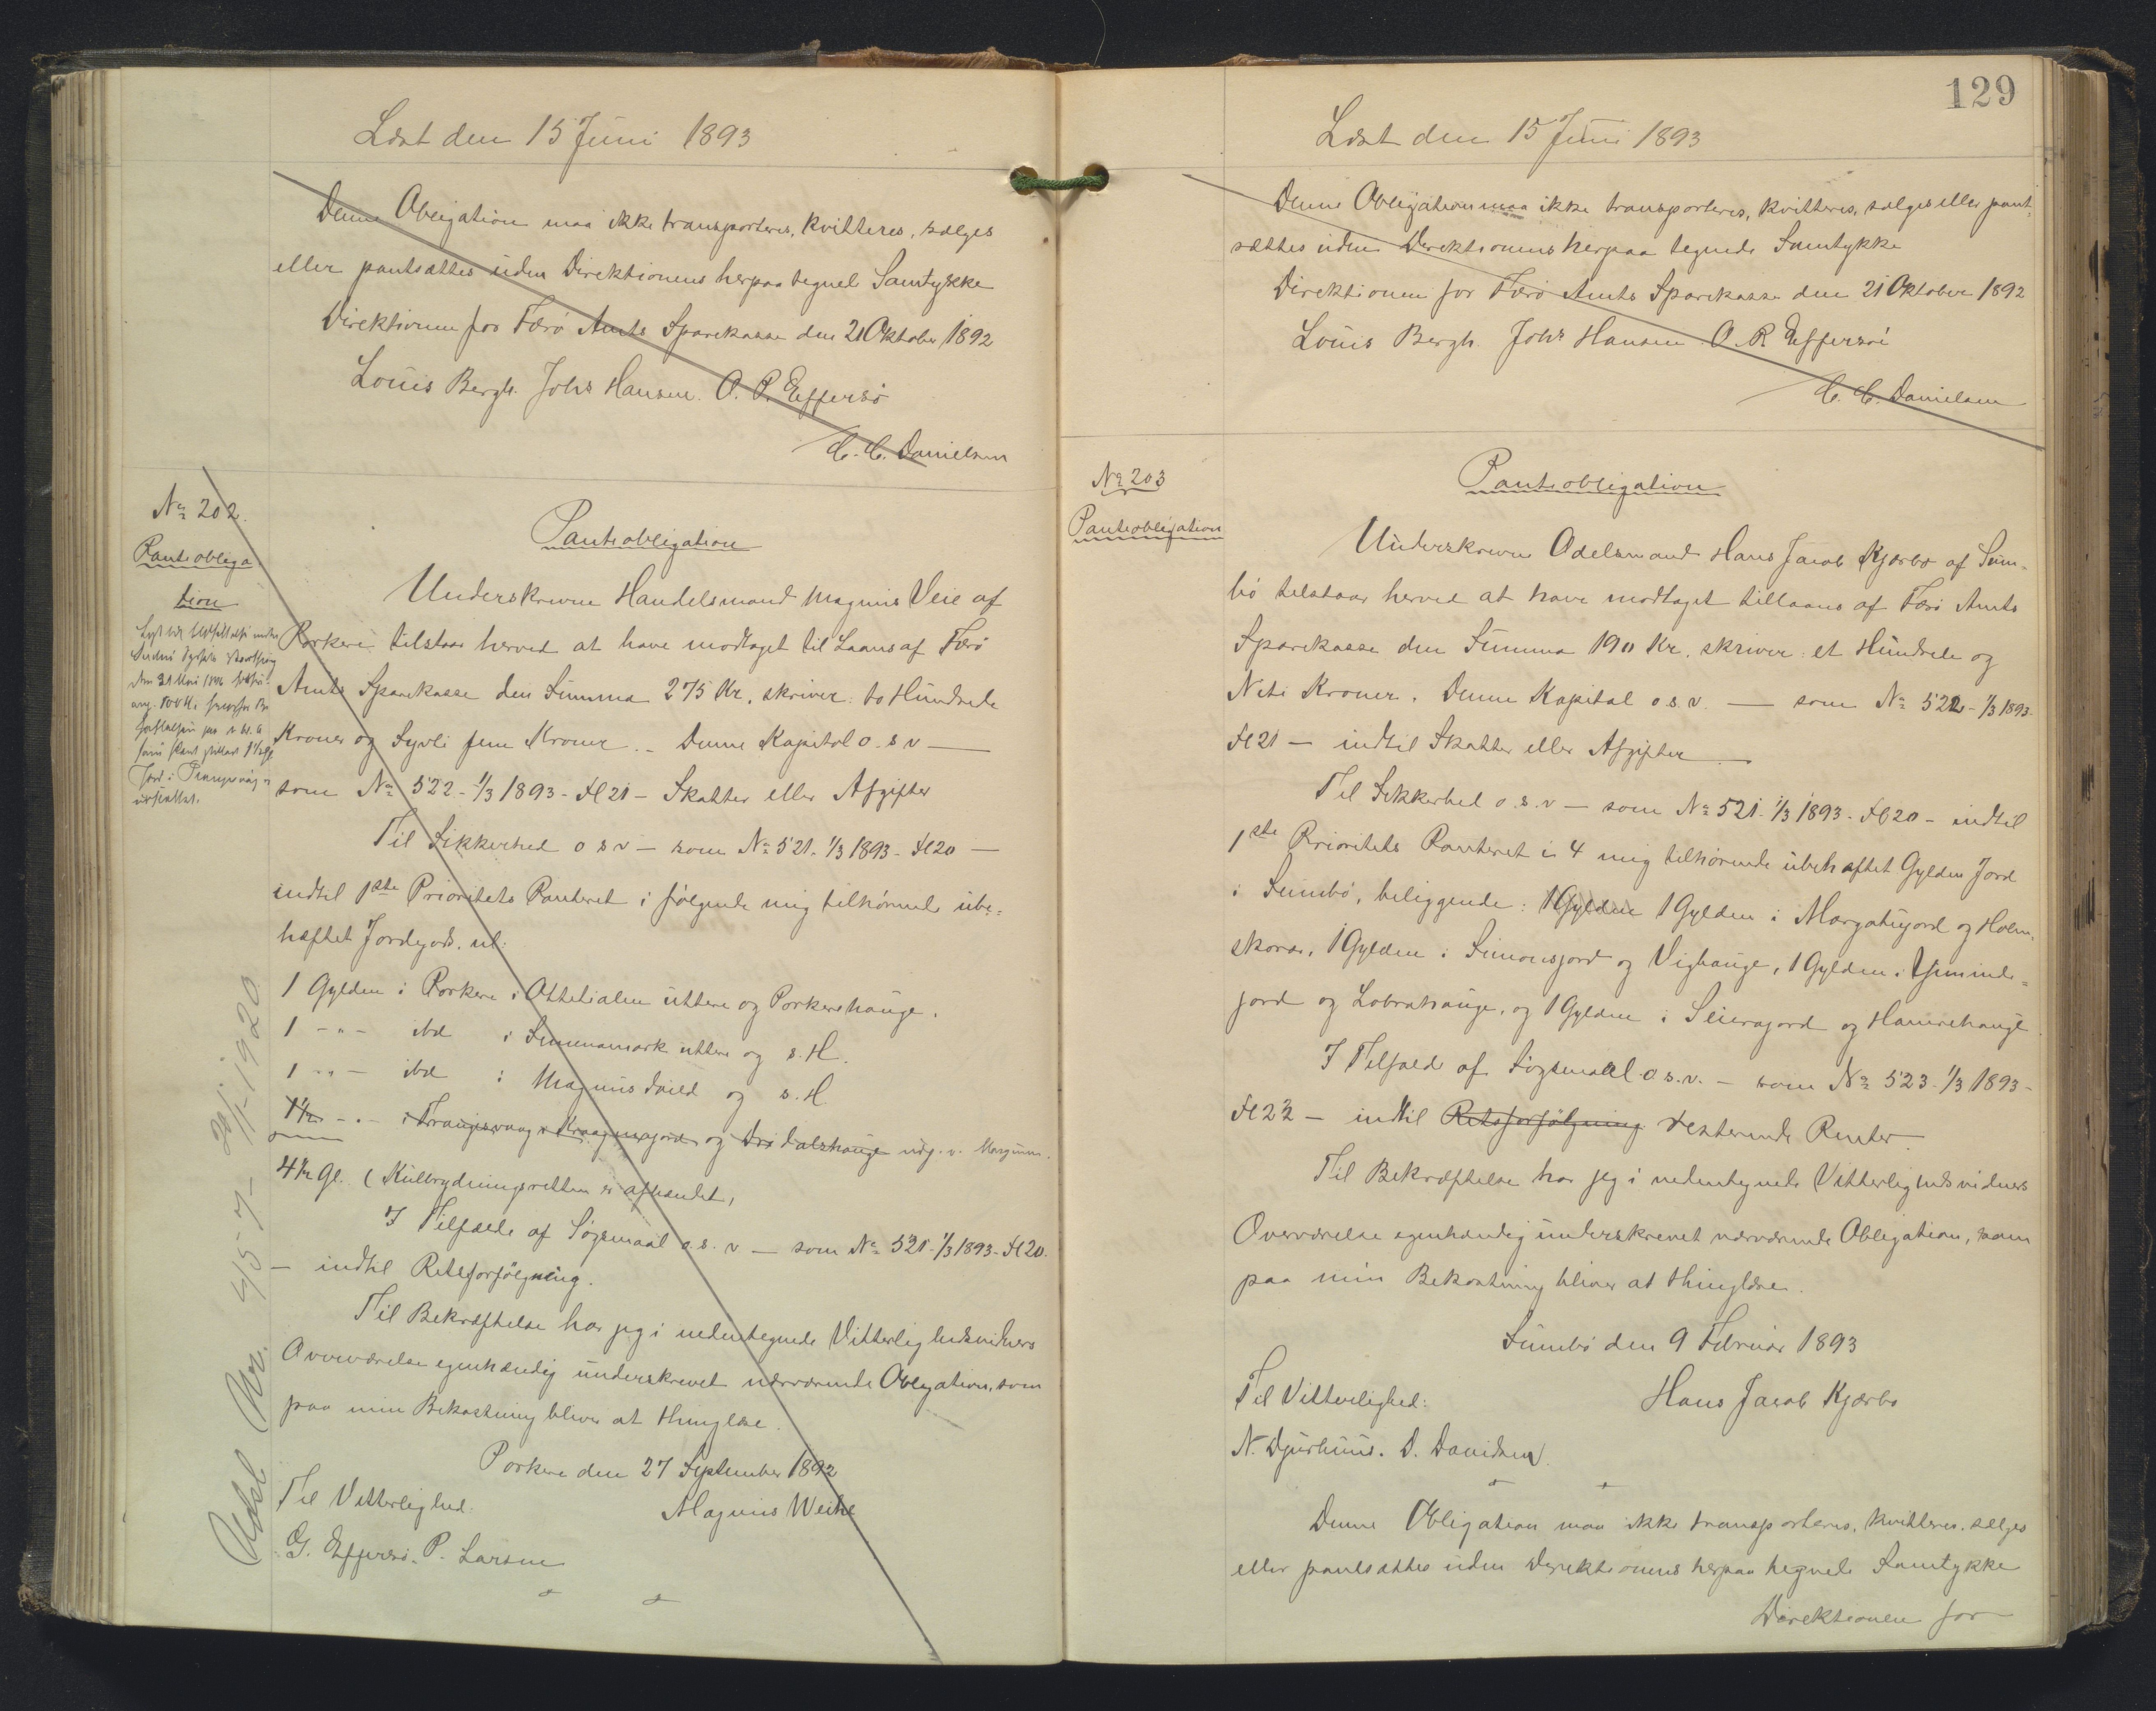 Læst den 15 Juni 1893
Denne Obligation maa ikke transporteres, kvitteres, sælges
eller pantsættes uden Direktionens herpaa tegnede Samtykke
Direktionen for Færø Amts Sparekasse den 21 Oktober 1892
Louis Bergh. Johs Hansen. O. P. Effersö
C. C. Danielsen
No 202.
Panteobliga
tion
Panteobligation
Underskrevne Handelsmand Magnus Veie af
Porkere tilstaar herved at have modtaget til Laans af Færö
Amts Sparekasse den Summa 275 Kr. skriver: to Hundrede
Kroner og Syvti fem Kroner. - Denne Kapital o.s v —
som No 522 - 1/3 1893 - Fl 21 - Skatter eller Afgifter
Til Sikkerhed o s v — som No 521 - 1/3 1893 - Fl 20 —
indtil 1ste Prioritets Panteret i følgende mig tilhørende ube=
hæftet Jordegods. nl:
1 Gylden i Porkere i Ottetialen uttere og Porkerehauge.
1 - " - ibd i Summamark uttere og s. H.
1 - " - ibd i Magnus og s. H.
1 1/2 - " - i Trangisvaag i Kraagusajord og dalshauge udg. v. Margunn.
4 1/2 Gl. (Kulbrydningsretten er afhændet,
I Tilfælde af Søgsmaal o. s. v — som No 521 - 1/3 1893 - Fl 20.
— indtil Retsforfölgning.
Til Bekræftelse har jeg i nedentegnede Vitterlighedsvidners
Overværelse egenhændig underskrevet nærværende Obligation, som
paa min Bekostning bliver at thinglæse.
Porkere den 27 September 1892
Til Vitterlighed:
Magnus Weihe
G. Effersö. P. Larsen
129
Læst den 15 Juni 1893
Denne Obligation maa ikke transporteres, kvitteres, sælges eller pant=
sættes uden Direktionens herpaa tegnede Samtykke
Direktionen for Færö Amts Sparekasse den 21 Oktober 1892
Louis Bergh. Johs Hansen. O. P. Effersö
C. C. Danielsen
No 203
Panteobligation
Panteobligation
Underskrevne Odelsmand Hans Jacob Kjærbo af Sum=
bö tilstaar herved at have modtaget til laans af Færö Amts
Sparekasse den Summa 190 Kr. skriver: et Hundrede og
Niti Kroner. Denne Kapital o s. v. — som No 522 - 1/3 1893 -
Fl 21 — indtil Skatter eller Afgifter —
Til Sikkerhed o. s. v — som No 521 - 1/3 1893 - Fl 20 - indtil
1ste Prioritets Panteret i 4 mig tilhørende ubehæftet Gylden Jord
i Sumbö, beliggende: 1 Gylden 1 Gylden i Morgatujord og Holm=
skoren, 1 Gylden i Simonsjord og Vighauge, 1 Gylden i
jord og Lobrahauge, og 1 Gylden i Seierajord og Hamrehauge
I Tilfælde af Søgsmaal o s. v. — som No 523 - 1/3 1893 -
Fl 22 — indtil Retsforfölgning resterende Renter —
Til Bekræftelse har jeg i nedentegnede Vitterlighedsvidners
Overværelse egenhændig underskrevet nærværende Obligation, som
paa min Bekostning bliver at thinglæse.
Sumbö den 9 Februar 1893
Til Vitterlighed:
Hans Jacob Kjærbo
N. Djurhuus. D. Davidsen.
Denne Obligation maa ikke transporteres, kvitteres, sælges
eller pantsættes uden Direktionens herpaa tegnede Samtykke
Direktionen for